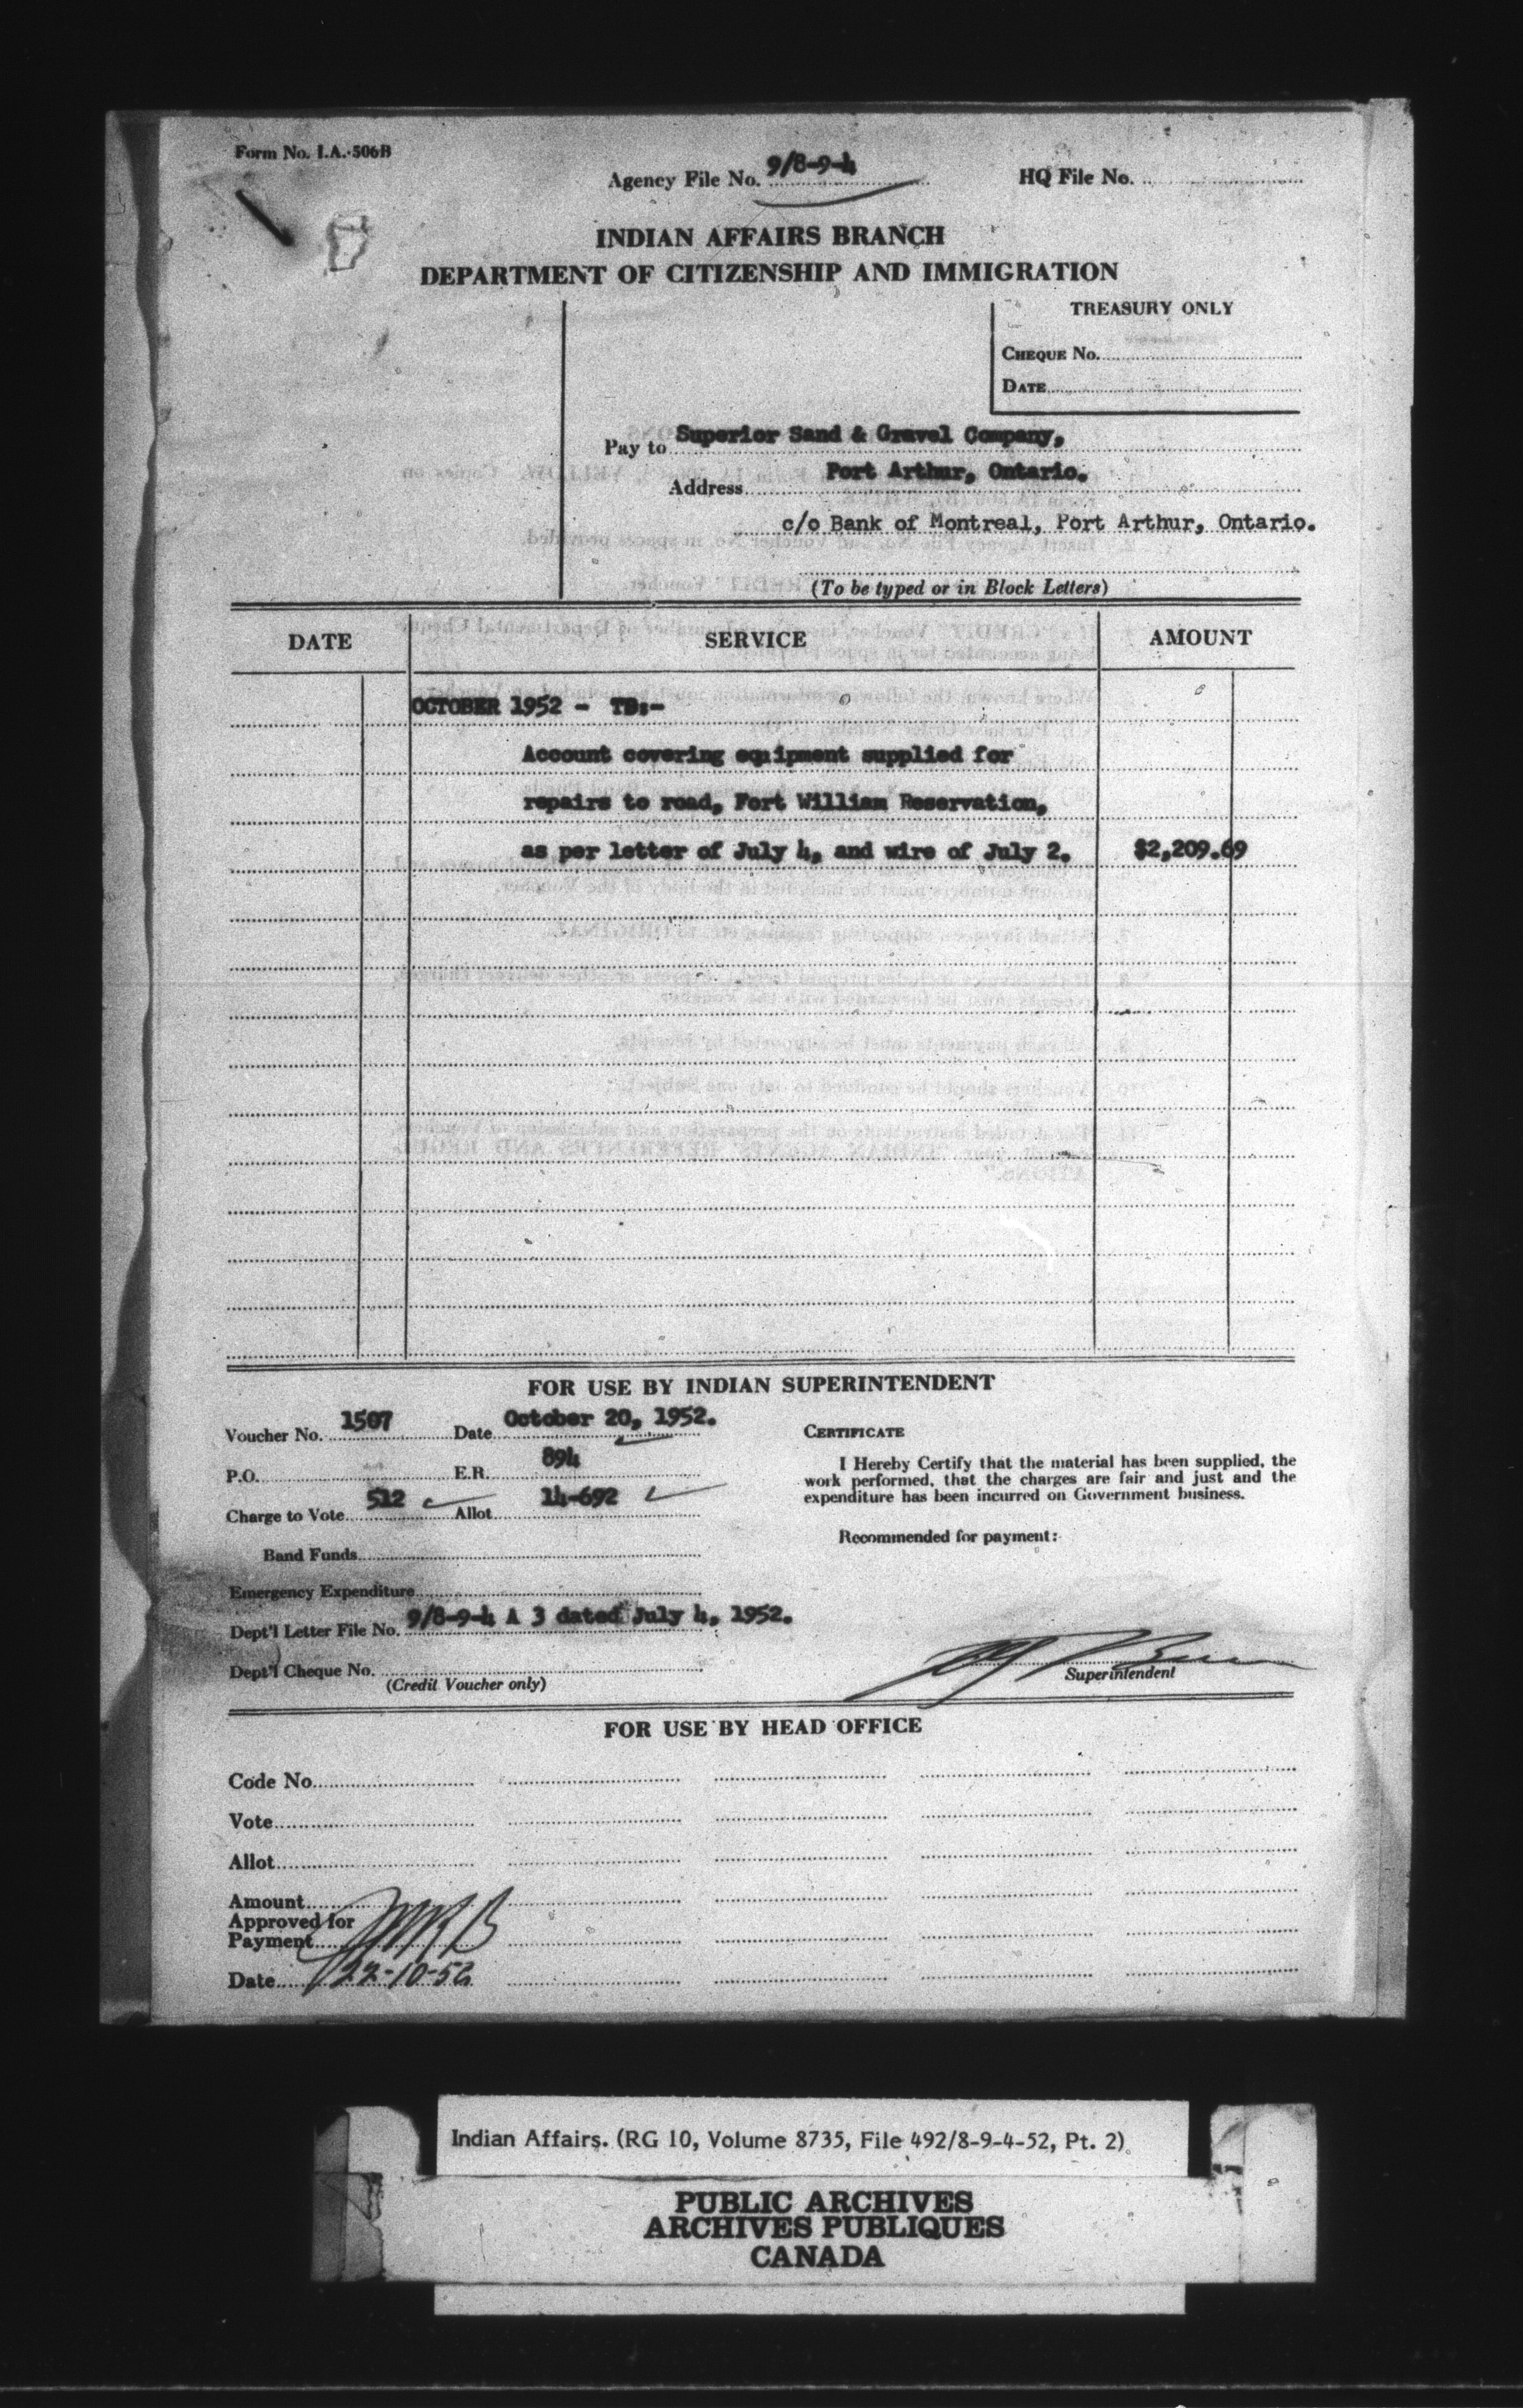 Form No. I.A.-506B
Agency File No. 9/8-9-4
HQ File No.
INDIAN AFFAIRS BRANCH
DEPARTMENT OF CITIZENSHIP AND IMMIGRATION
TREASURY ONLY
CHEQUE No.
DATE
Pay to Superior Sand & Gravel Company,
Address Port Arthur, Ontario.
c/o Bank of Montreal, Port Arthur, Ontario.
(To be typed or in Block Letters)
DATE SERVICE AMOUNT
OCTOBER 1952 - TO:-
Account covering equipment supplied for
repairs to road, Fort William Reservation,
as per letter of July 4, and wire of July 2. $2,209.69
FOR USE BY INDIAN SUPERINTENDENT
Voucher No. 1507 Date October 20, 1952.
P.O. E.R. 894
Charge to Vote 512 Allot. 14-692
Band Funds
Emergency Expenditure
Dept'l Letter File No. 9/8-9-4 A 3 dated July 4, 1952.
Dept'l Cheque No.
(Credit Voucher only)
CERTIFICATE
I Hereby Certify that the material has been supplied, the
work performed, that the charges are fair and just and the
expenditure has been incurred on Government business.
Recommended for payment:
Superintendent
FOR USE BY HEAD OFFICE
Code No.
Vote
Allot.
Amount
Approved for
Payment
Date 22-10-52
Indian Affairs. (RG 10, Volume 8735, File 492/8-9-4-52, Pt. 2)
PUBLIC ARCHIVES
ARCHIVES PUBLIQUES
CANADA